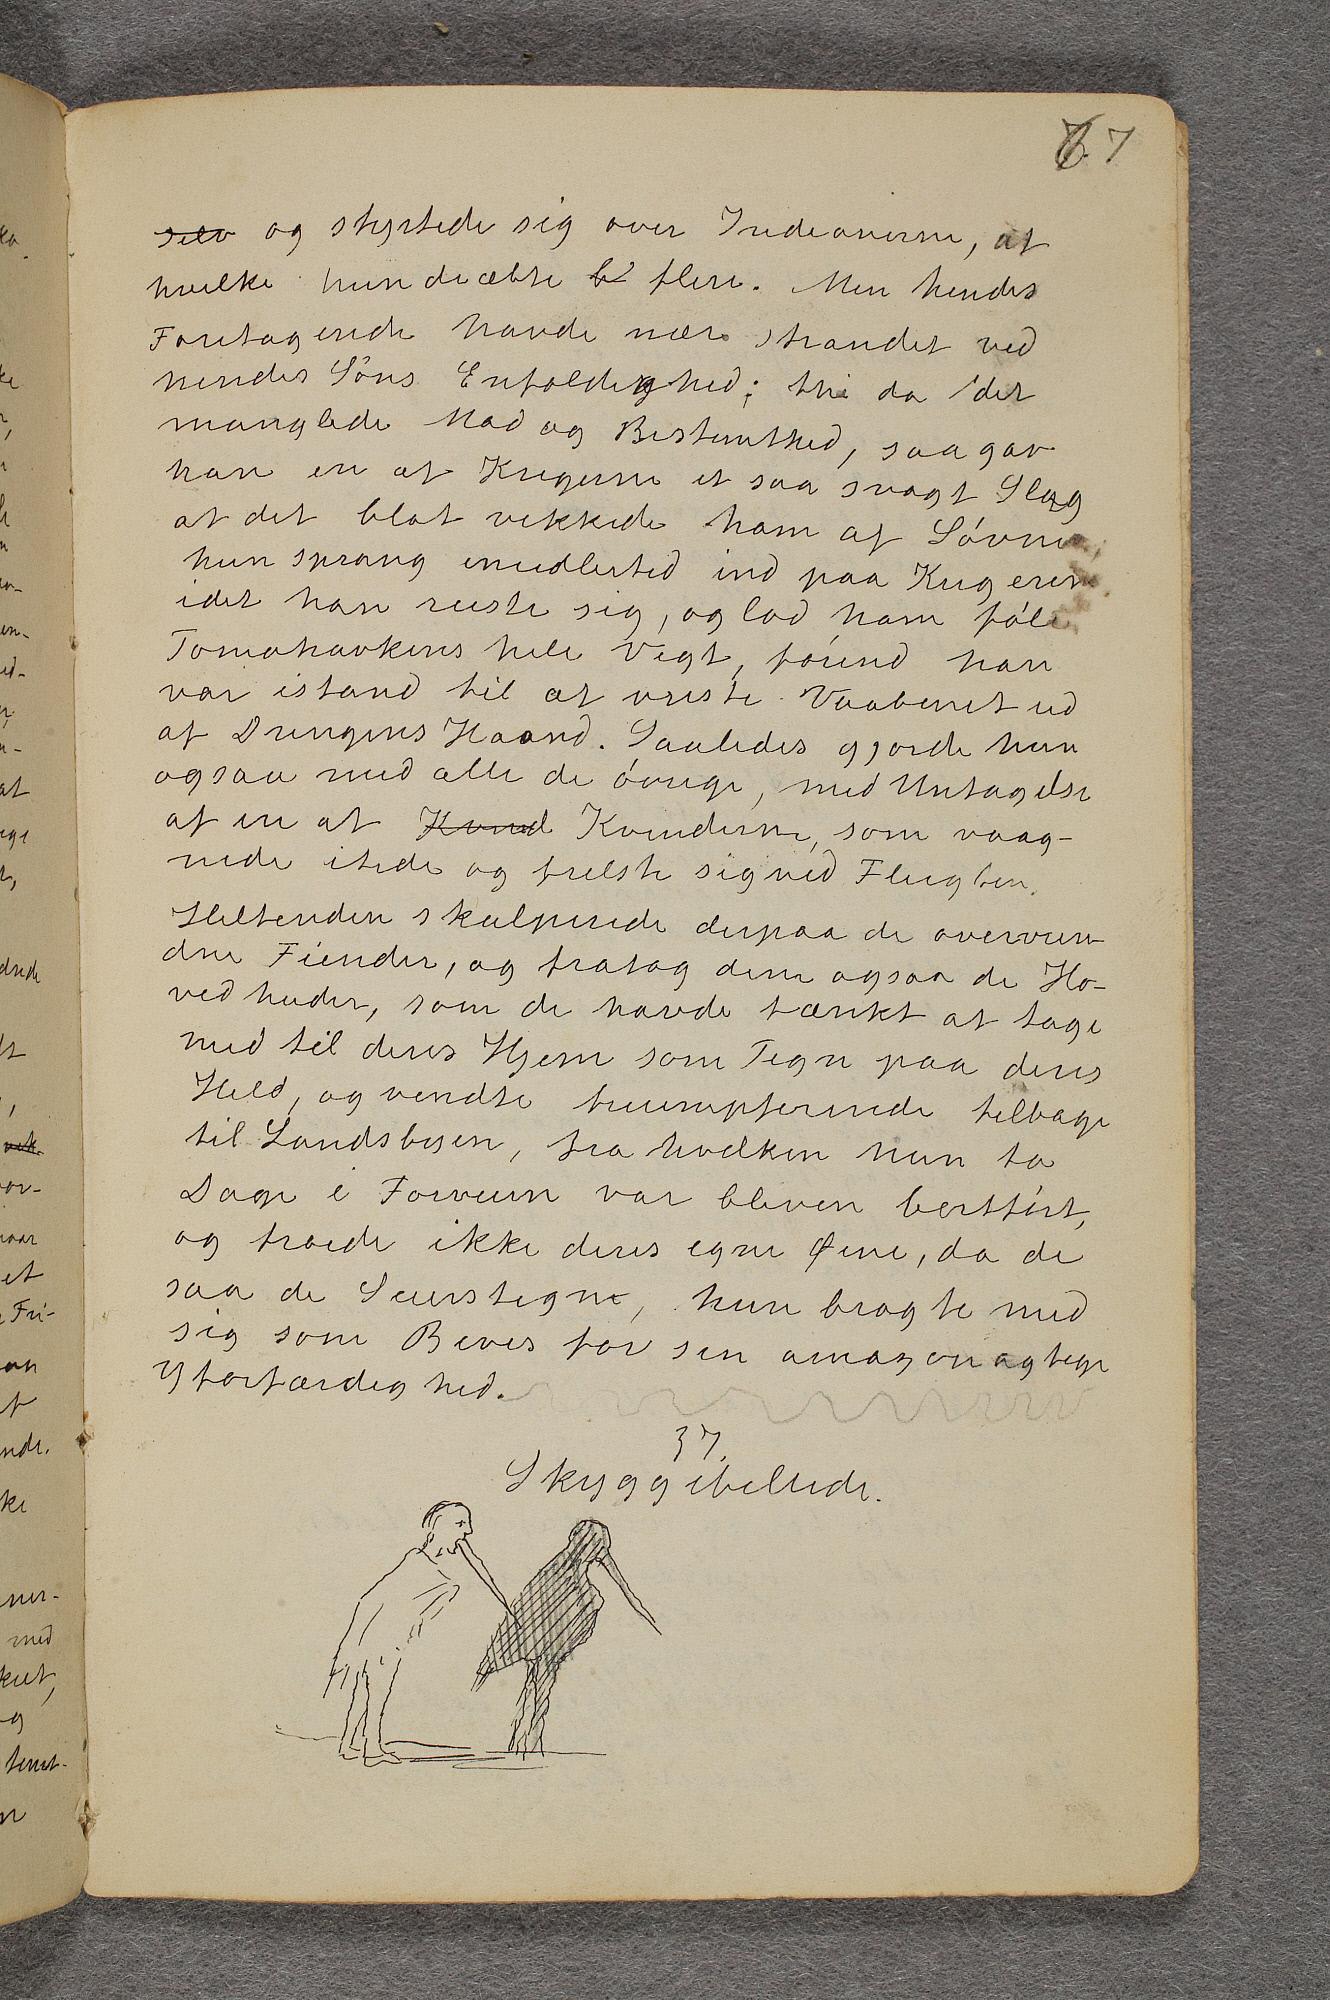 7
selv og styrtede sig over Indeanerne, af
hvilke hun dræbte b flere. Men hendes
Foretagende havde nær strandet ved
hendes Söns Enfoldighed; thi da det
manglede Mod og Bestemthed, saa gav
han en af Krigerne et saa svagt Slag
at det blot vekkede ham af Sövne,
hun sprang imidlertid ind paa Krigeren
idet han reiste sig, og lod ham föle
Tomohavkens hele Vegt, förend han
var istand til at vriste Vaabenet ud
af Drengens Haand. Saaledes gjorde hun
ogsaa med alle de övrige, med Untagelse
af en af Kvind Kvinderne, som vaag-
nede itide og frelste sig ved Flugten.
Heltenden skalperede derpaa de overvun-
dne Fiender, og fratog dem ogsaa de Ho-
vedhuder, som de havde tænkt at tage
med til deres Hjem som Tegn paa deres
Held, og vendte triumpferende tilbage
til Landsbyen, fra hvilken hun to
Dage i Forveien var bleven bortfört,
og troede ikke deres egne Øine, da de
saa de Seierstegn, hun bragte med
sig som Bevis for sin amazonagtige
Yforfærdighed.
37.
Skyggebillede.